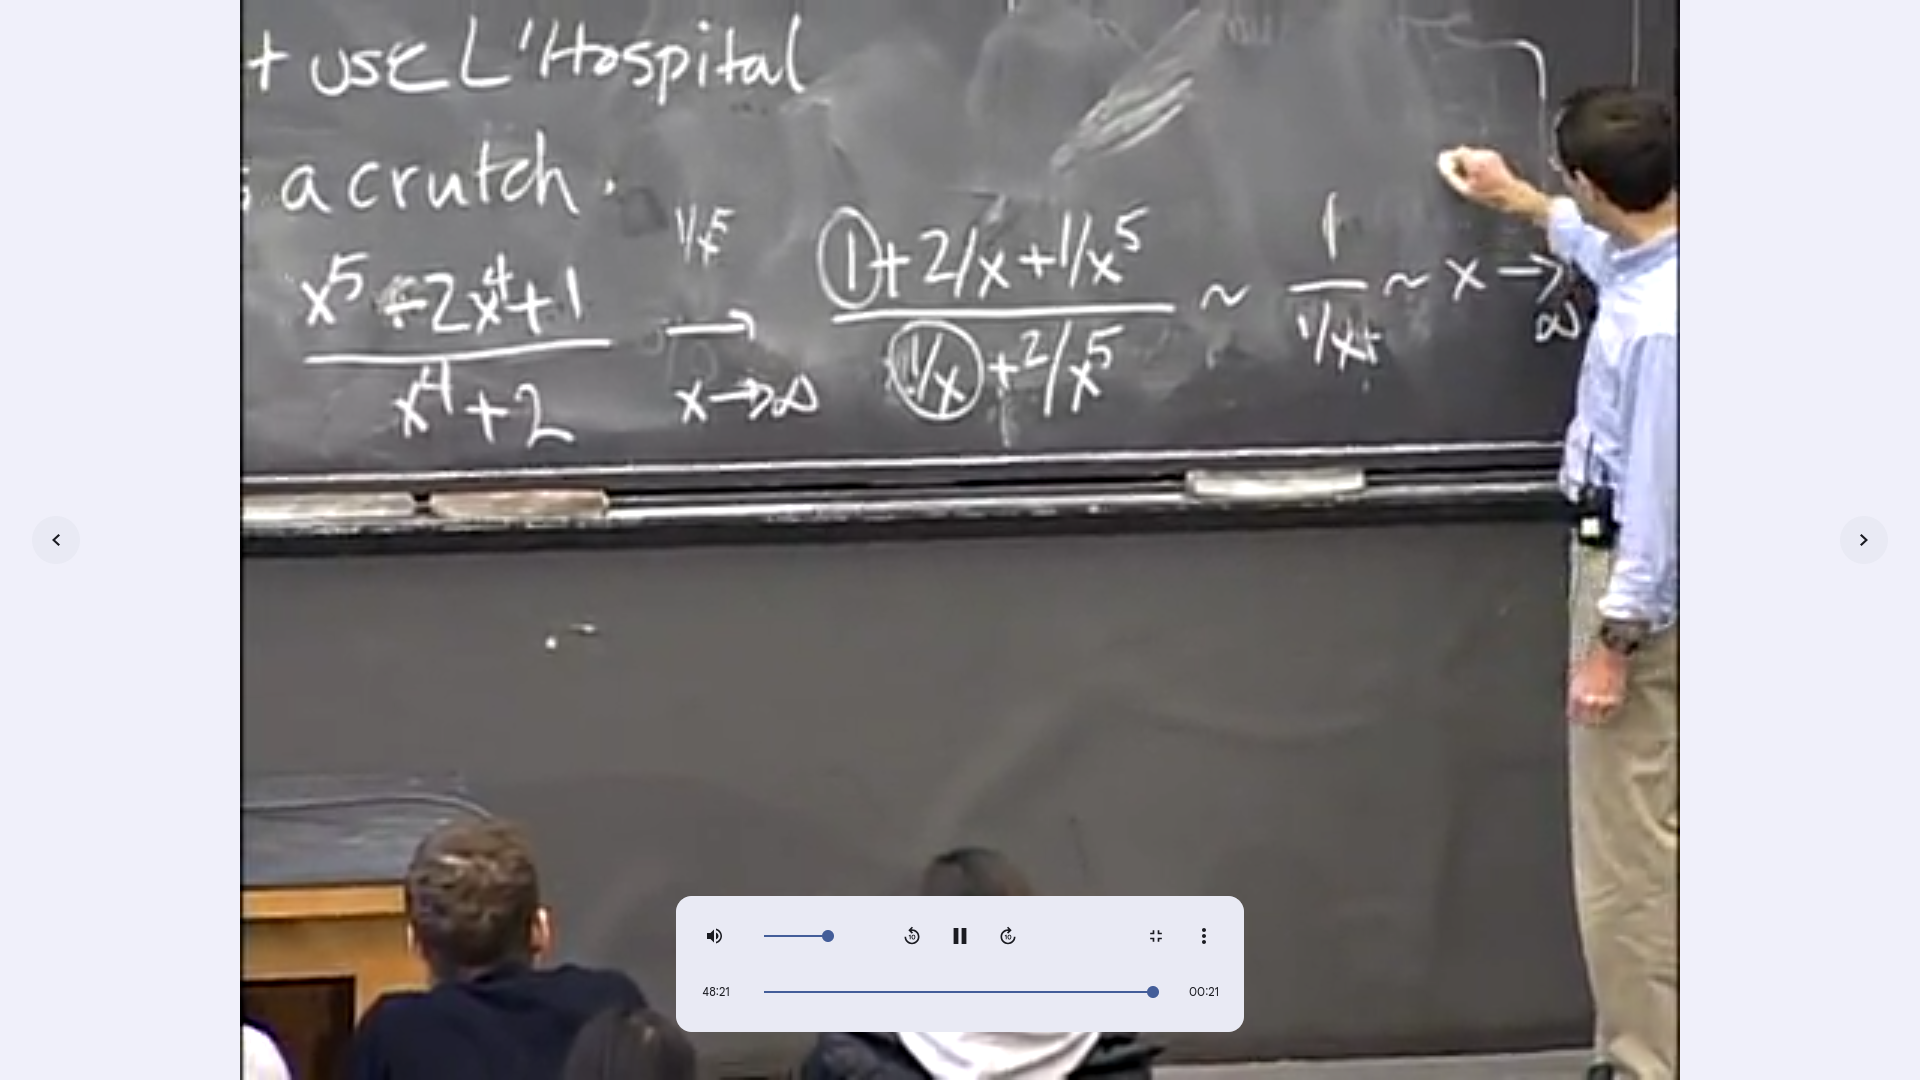 + use L'Hospital
s a crutch.
x^5 ÷ 2x^4 + 1 / x^4 + 2 1/x^5 → x→∞ 1 + 2/x + 1/x^5 / 1/x + 2/x^5 ~ 1 / 1/x ~ x → ∞
10 10
48:21 00:21